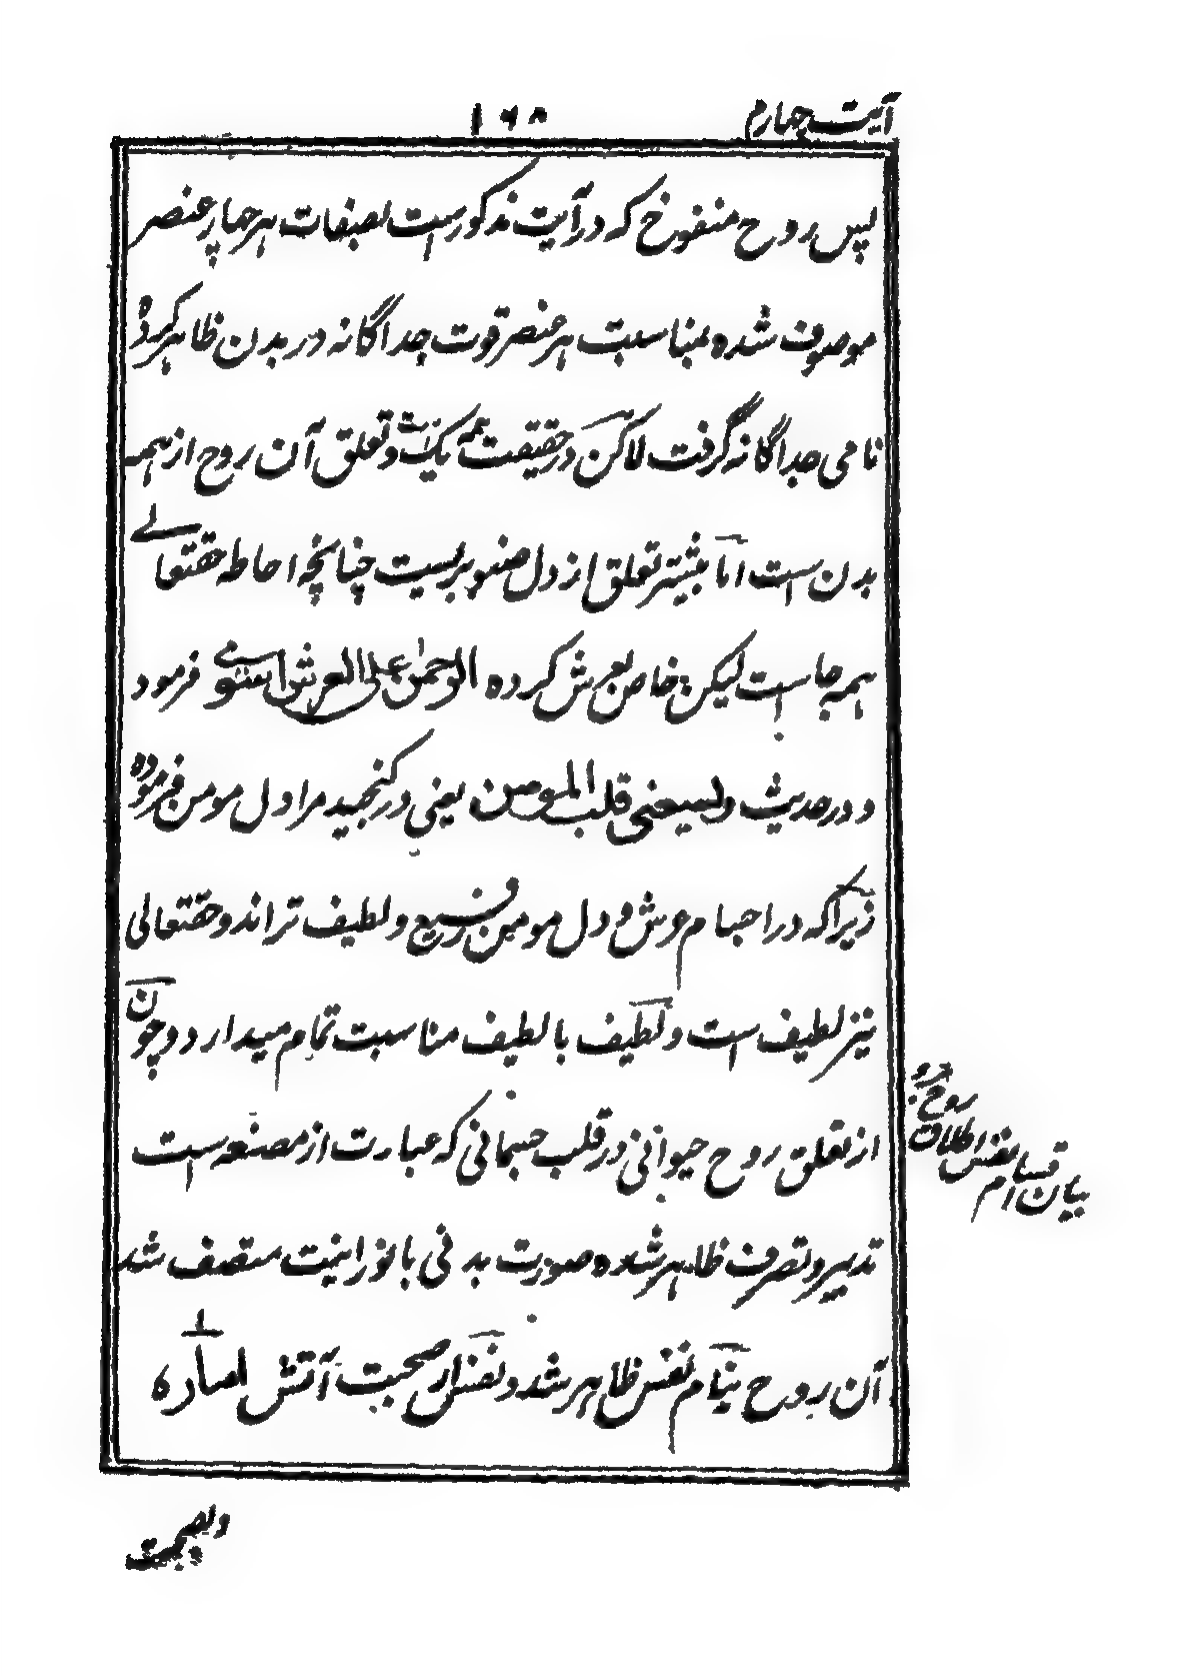 آیت چهارم ۱۶۸
پس روح منفوخ که در آیت مذکور است بصفات هر چهار عنصر
موصوف شده بمناسبت هر عنصر قوت جداگانه در بدن ظاهر کرده
نامی جداگانه گرفت لاکن در حقیقت همه یکیست و تعلق آن روح از همه
بدن است اما بیشتر تعلق از دل صنوبریست چنانچه احاطه حقتعالے
همه جا است لیکن خاص بعرش کرده الرحمن علی العرش استوے فرمود
و در حدیث ولسیعنی قلب المومن یعنی در گنجید مرا دل مومن فرموده
زیرا که در اجسام عرش و دل مومن وسیع و لطیف تر اند و حقتعالی
نیز لطیف است و لطیف با لطیف مناسبت تمام میدارد و چون
از تعلق روح حیوانی در قلب جسمانی که عبارت از مضغه است
تدبیر و تصرف ظاهر شده صورت بدنی با نورانیت متصف شد
آن روح بنام نفس ظاهر شد و نفس از صحبت آتش اماره
بیان اقسام نفس اطلاق
روح برو
و بصحبت